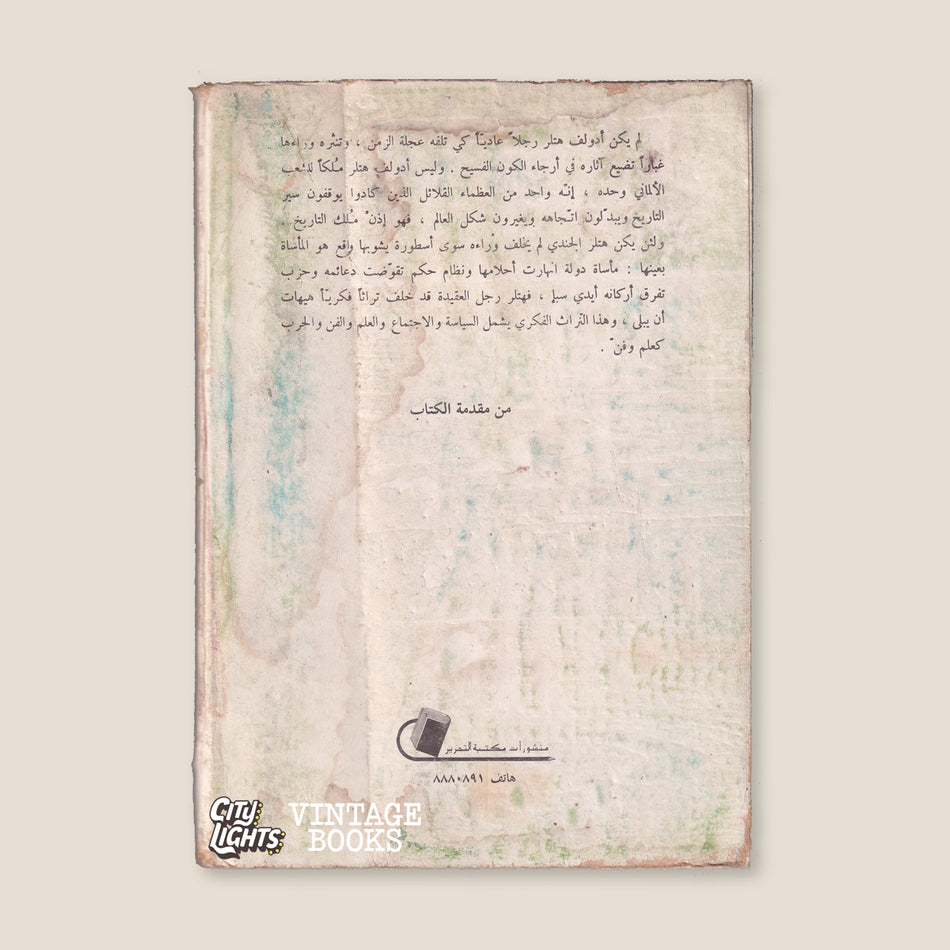 لم يكن أدولف هتلر رجلاً عاديّاً كي تلفه عجلة الزمن ، وتنثره وراءها
غباراً تضيع آثاره في أرجاء الكون الفسيح . وليس أدولف هتلر مُلكاً للشعب
الألماني وحده ، إنّه واحد من العظماء القلائل الذين كادوا يوقفون سير
التاريخ ويبدّلون اتّجاهه ويغيرون شكل العالم ، فهو إذنْ مُلك التاريخ .
ولئن يكن هتلر الجندي لم يخلف وراءه سوى أسطورة يشوبها واقع هو المأساة
بعينها : مأساة دولة انهارت أحلامها ونظام حكم تقوّضت دعائمه وحزب
تفرق أركانه أيدي سبإ ، فهتلر رجل العقيدة قد خلف تراثاً فكريّاً هيهات
أن يبلى ، وهذا التراث الفكري يشمل السياسة والاجتماع والعلم والفن والحرب
كعلم وفنّ .
من مقدمة الكتاب
منشورات مكتبة التحرير
هاتف ٨٨٨٠٨٩١
CITY LIGHTS
VINTAGE
BOOKS